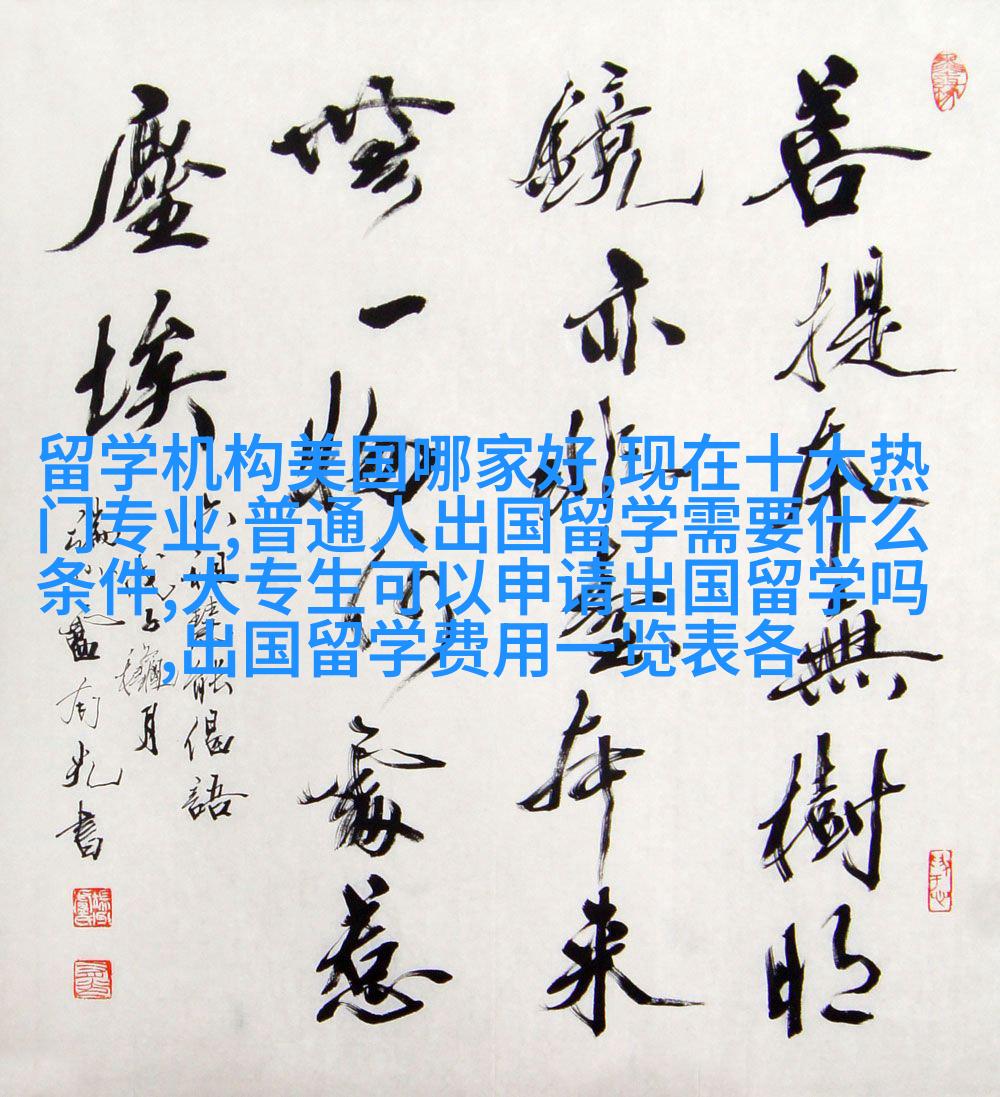 菩提本無樹明
鏡亦非臺本來
無一物何處惹
塵埃
六祖慧能偈語
留学机构美国哪家好,现在十大热
门专业,普通人出国留学需要什么
条件,大专生可以申请出国留学吗
,出国留学费用一览表各